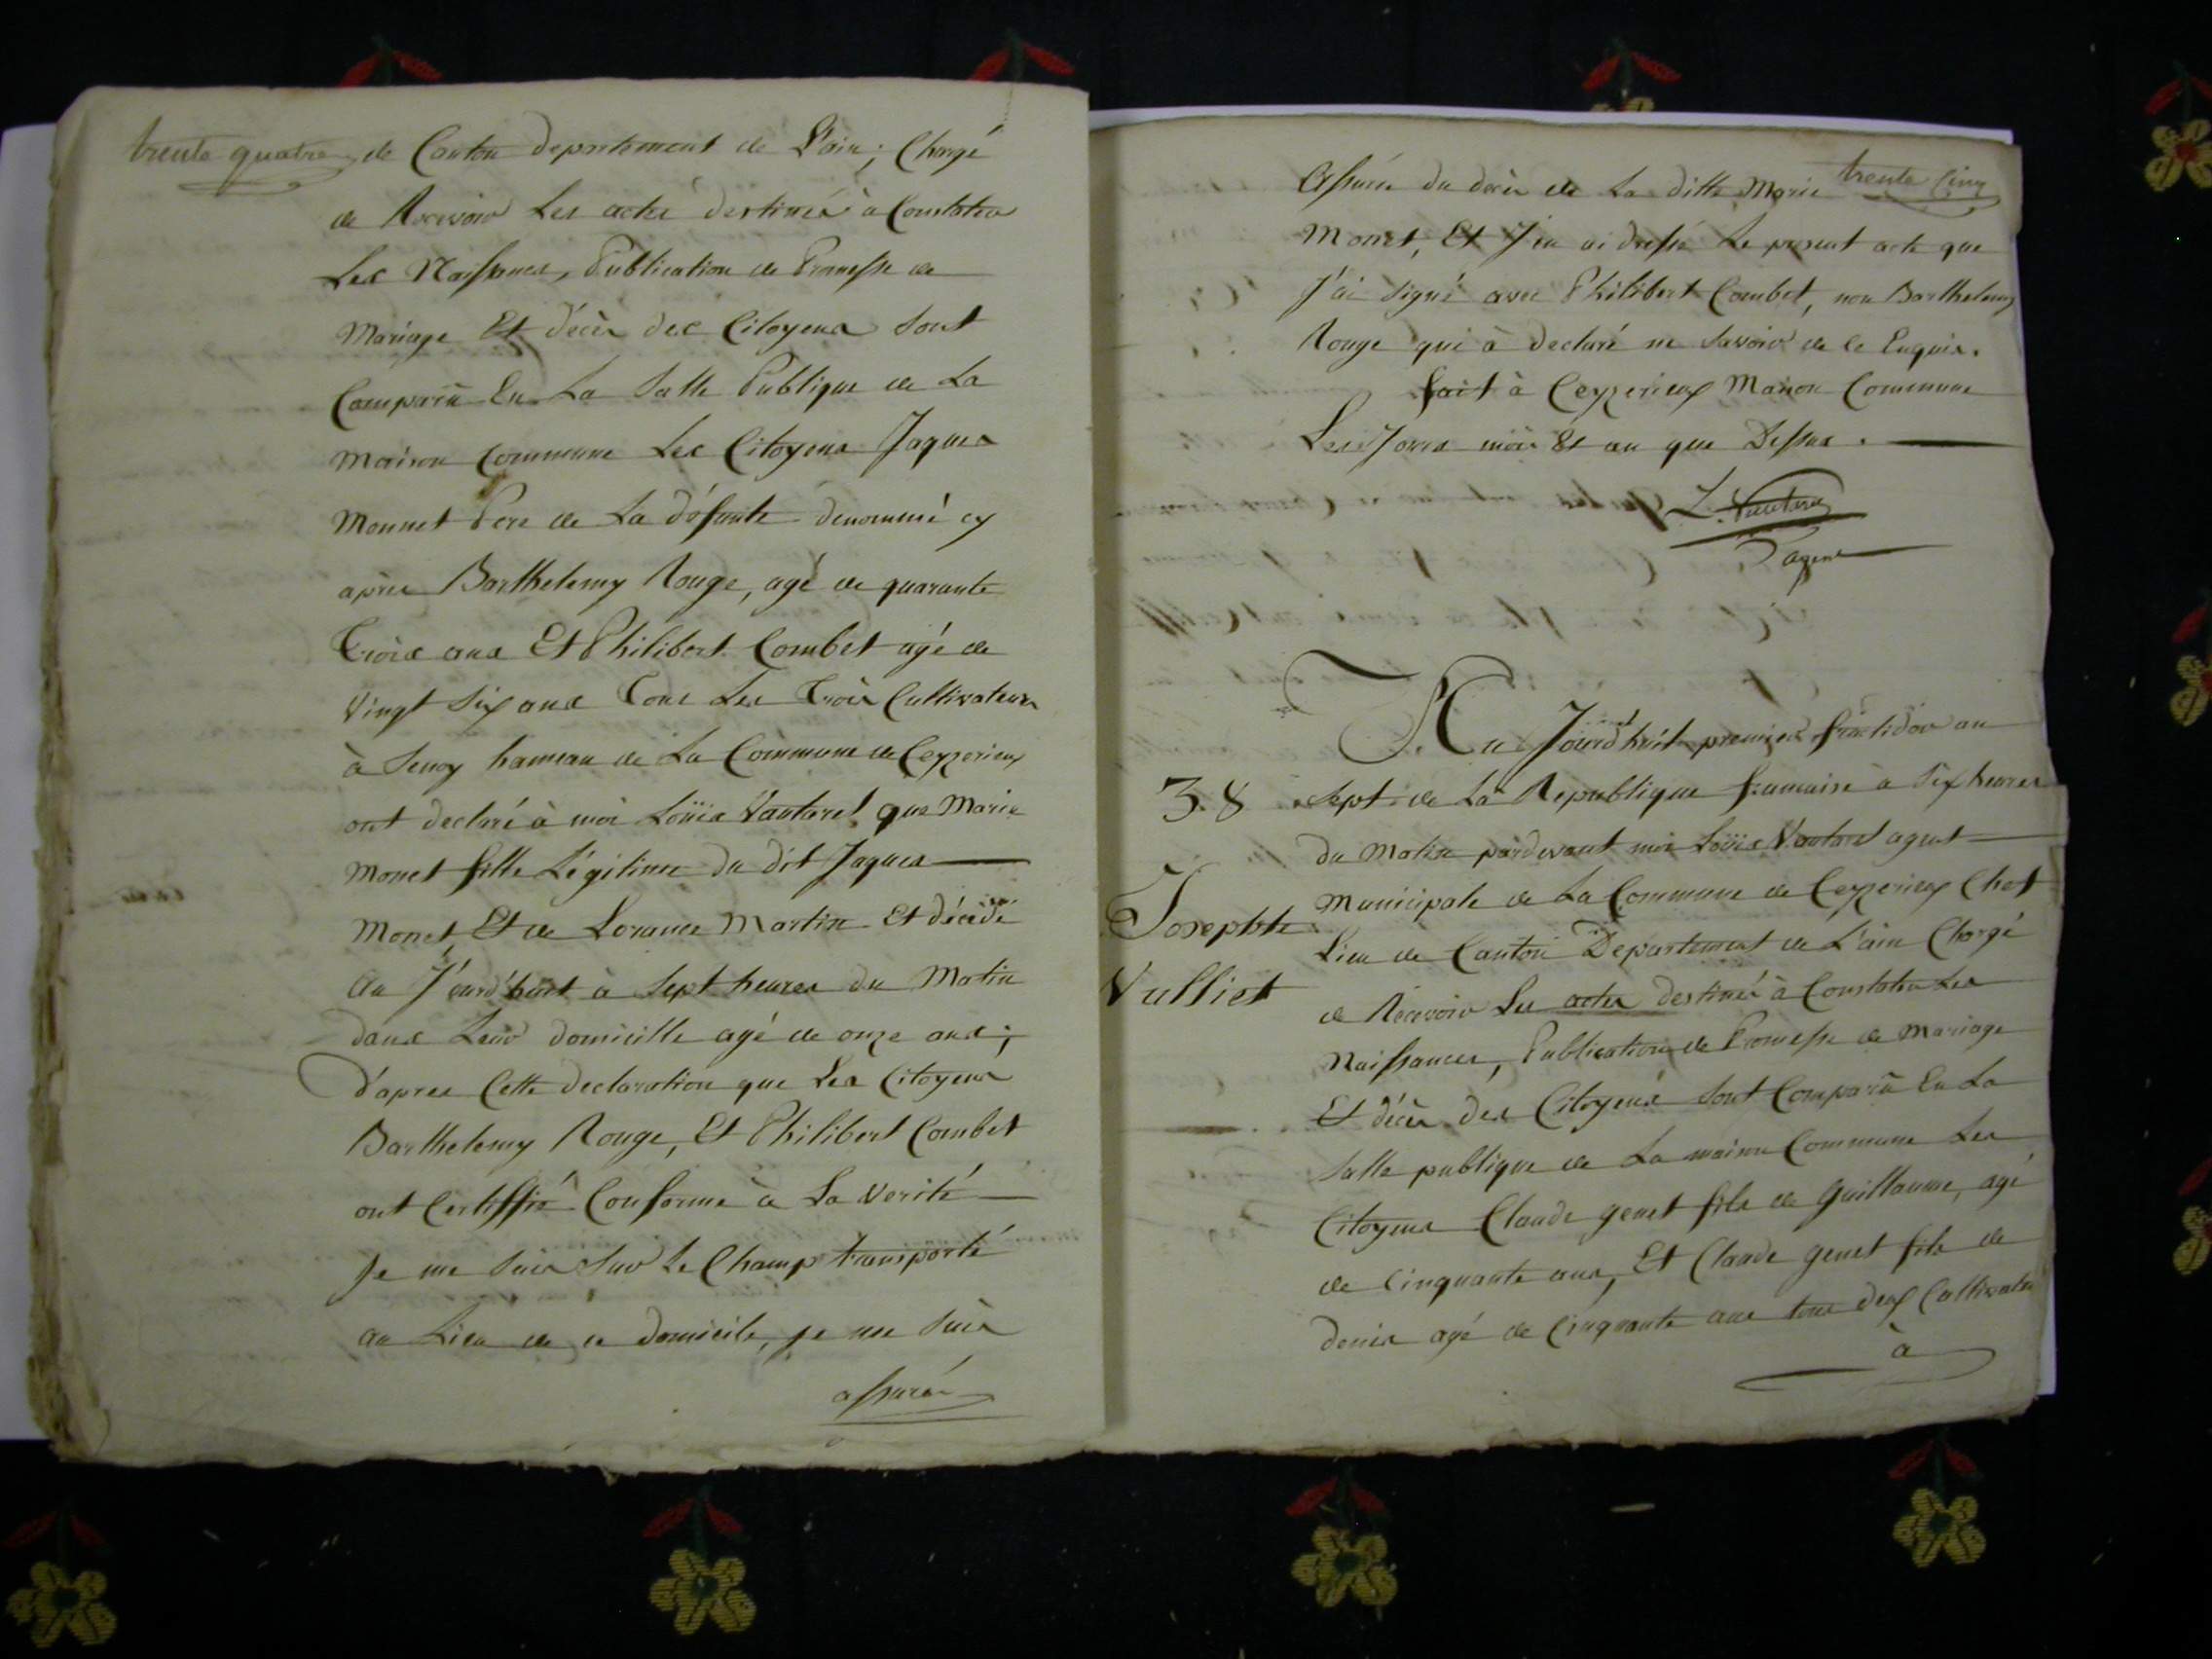 trente quatre
de Canton departement de L'ain; Chargé
de Recevoir Les actes destinés à Constater
Les Naissances, Publication de Promesse de
Mariage Et décès des Citoyens sont
Comparû En La Salle Publique de La
maison Commune Les Citoyens Jaques
Monnet Pere de La défunte denommé cy
après Barthelemy Rouge, agé de quarante
Trois ans Et Philibert Combet agé de
Vingt Six ans Tous Les Trois Cultivateurs
à Senoy hameau de La Commune de Ceyzerieux
ont declaré à moi Loüis Vautaret que Marie
Monet fille Légitime du dit Jaques
Monet, Et de Lorance Martin Et décédé
Au Jourd'huit à Sept heures du Matin
dans Leur domicille agé de onze ans;
D'apres Cette declaration que Les Citoyens
Barthelemy Rouge, Et Philibert Combet
ont Certiffié Conforme à La Verité
Je me Suis Sur Le Champ transporté
au Lieu de ce domicile, je me Suis
assuré
trente Cinq
Assurés du decès de La ditte Marie
Monet, Et J'en ai dressé Le present acte que
J'ai Signé avec Philibert Combet, non Barthelemy
Rouge qui à declaré ne Savoir de ce Enquis.
fait à Ceyzerieux Maison Commune
Les Jours mois Et an que Dessus.
L. Vautaret
agent
Au Jourd'huit premier fructidor an
38
Sept de La Republique francaise à Six heures
du Matin pardevant moi Loüis Vautaret agent
Municipale de La Commune de Ceyzerieux Chef
Josephte
Lieu de Canton Departement de L'ain Chargé
Vulliet
de Recevoir Les actes destinés à Constater Les
Naissances, Publication de Promesse de Mariage
Et décès des Citoyens Sont Comparû En La
Salle publique de La maison Commune Les
Citoyens Claude genet fils de Guillaume, agé
de Cinquante ans, Et Claude genet fils de
denis agé de Cinquante ans tous deux Cultivateur
à